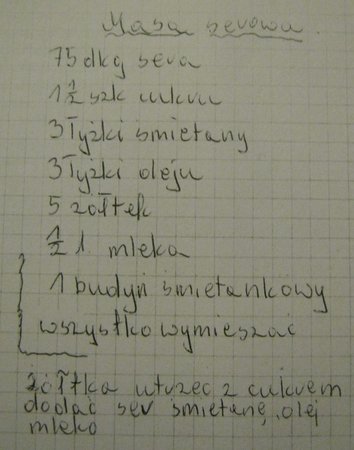 Masa serowa
75 dkg sera
1 1/2 szk cukru
3 łyżki śmietany
3 łyżki oleju
5 żółtek
1/2 l. mleka
1 budyń śmietankowy
wszystko wymieszać
żółtka utrzeć z cukrem
dodać ser śmietanę, olej
mleko